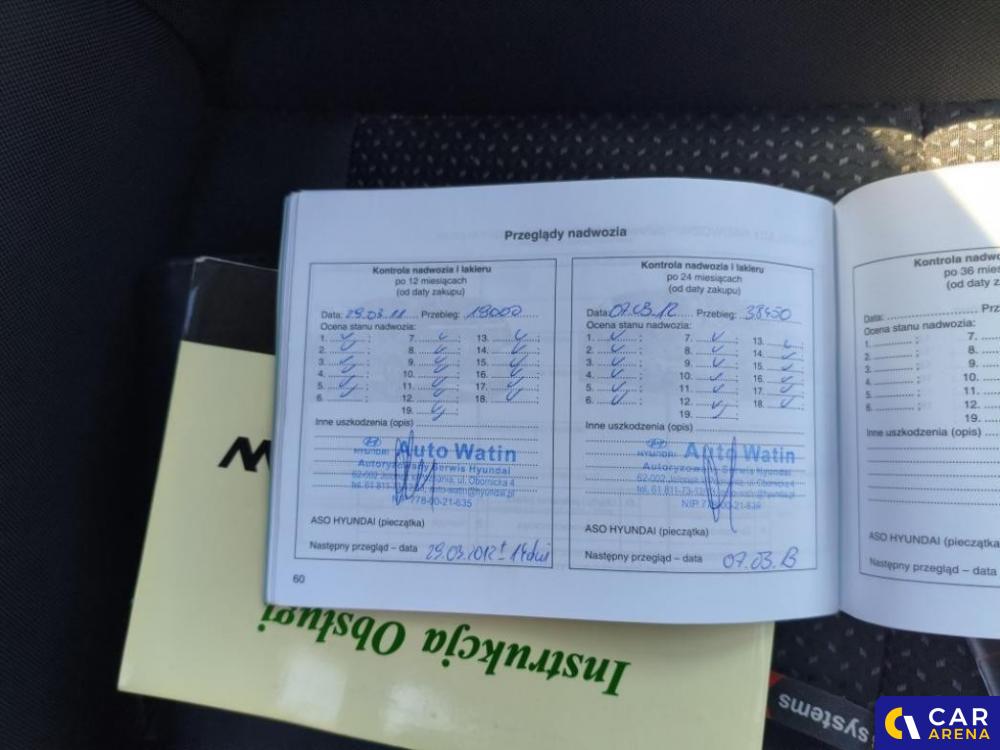 Przeglądy nadwozia
Kontrola nadwozia i lakieru
po 12 miesiącach
(od daty zakupu)
Data: 29.03.11 Przebieg: 19000
Ocena stanu nadwozia:
1. ; 7. ; 13. ;
2. ; 8. ; 14. ;
3. ; 9. ; 15. ;
4. ; 10. ; 16. ;
5. ; 11. ; 17. ;
6. ; 12. ; 18. ;
19. ;
Inne uszkodzenia (opis)
HYUNDAI Auto Watin
Autoryzowany Serwis Hyundai
62-002 ul. Obornicka 4
NIP 778-00-21-635
ASO HYUNDAI (pieczątka)
Następny przegląd – data 29.03.2012 ± 14 dni
60
Kontrola nadwozia i lakieru
po 24 miesiącach
(od daty zakupu)
Data: 07.03.12 Przebieg: 38450
Ocena stanu nadwozia:
1. ; 7. ; 13. ;
2. ; 8. ; 14. ;
3. ; 9. ; 15. ;
4. ; 10. ; 16. ;
5. ; 11. ; 17. ;
6. ; 12. ; 18. ;
19. ;
Inne uszkodzenia (opis)
HYUNDAI Auto Watin
Autoryzowany Serwis Hyundai
62-002 ul. Obornicka 4
NIP 778-00-21-635
ASO HYUNDAI (pieczątka)
Następny przegląd – data 07.03.13
Kontrola
po 36
(od daty
Data:
Ocena stanu nadwozia:
1. ; 7.
2. ; 8.
3. ; 9.
4. ; 10.
5. ; 11.
6. ; 12.
19.
Inne uszkodzenia (opis)
ASO HYUNDAI (pieczątka
Następny przegląd – data
Instrukcja Obsługi
systems
CAR
ARENA